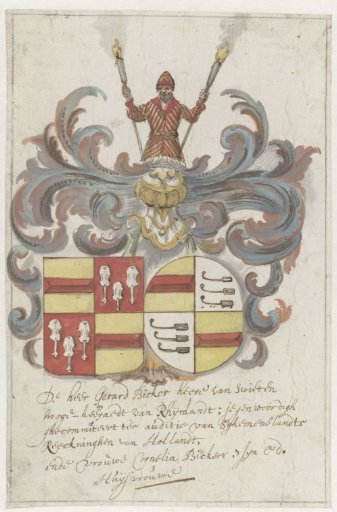 De heer Gerard Bicker heere van Swieten
hooge heemraedt van Rhijnlandt: jegenwoordigh
ghecommitteert ter auditie van S'ghemeenelandts
Reeckninghen van Hollandt.
ende vrouwe Cornelia Bicker. sijn Ed.
Huysvrouwe